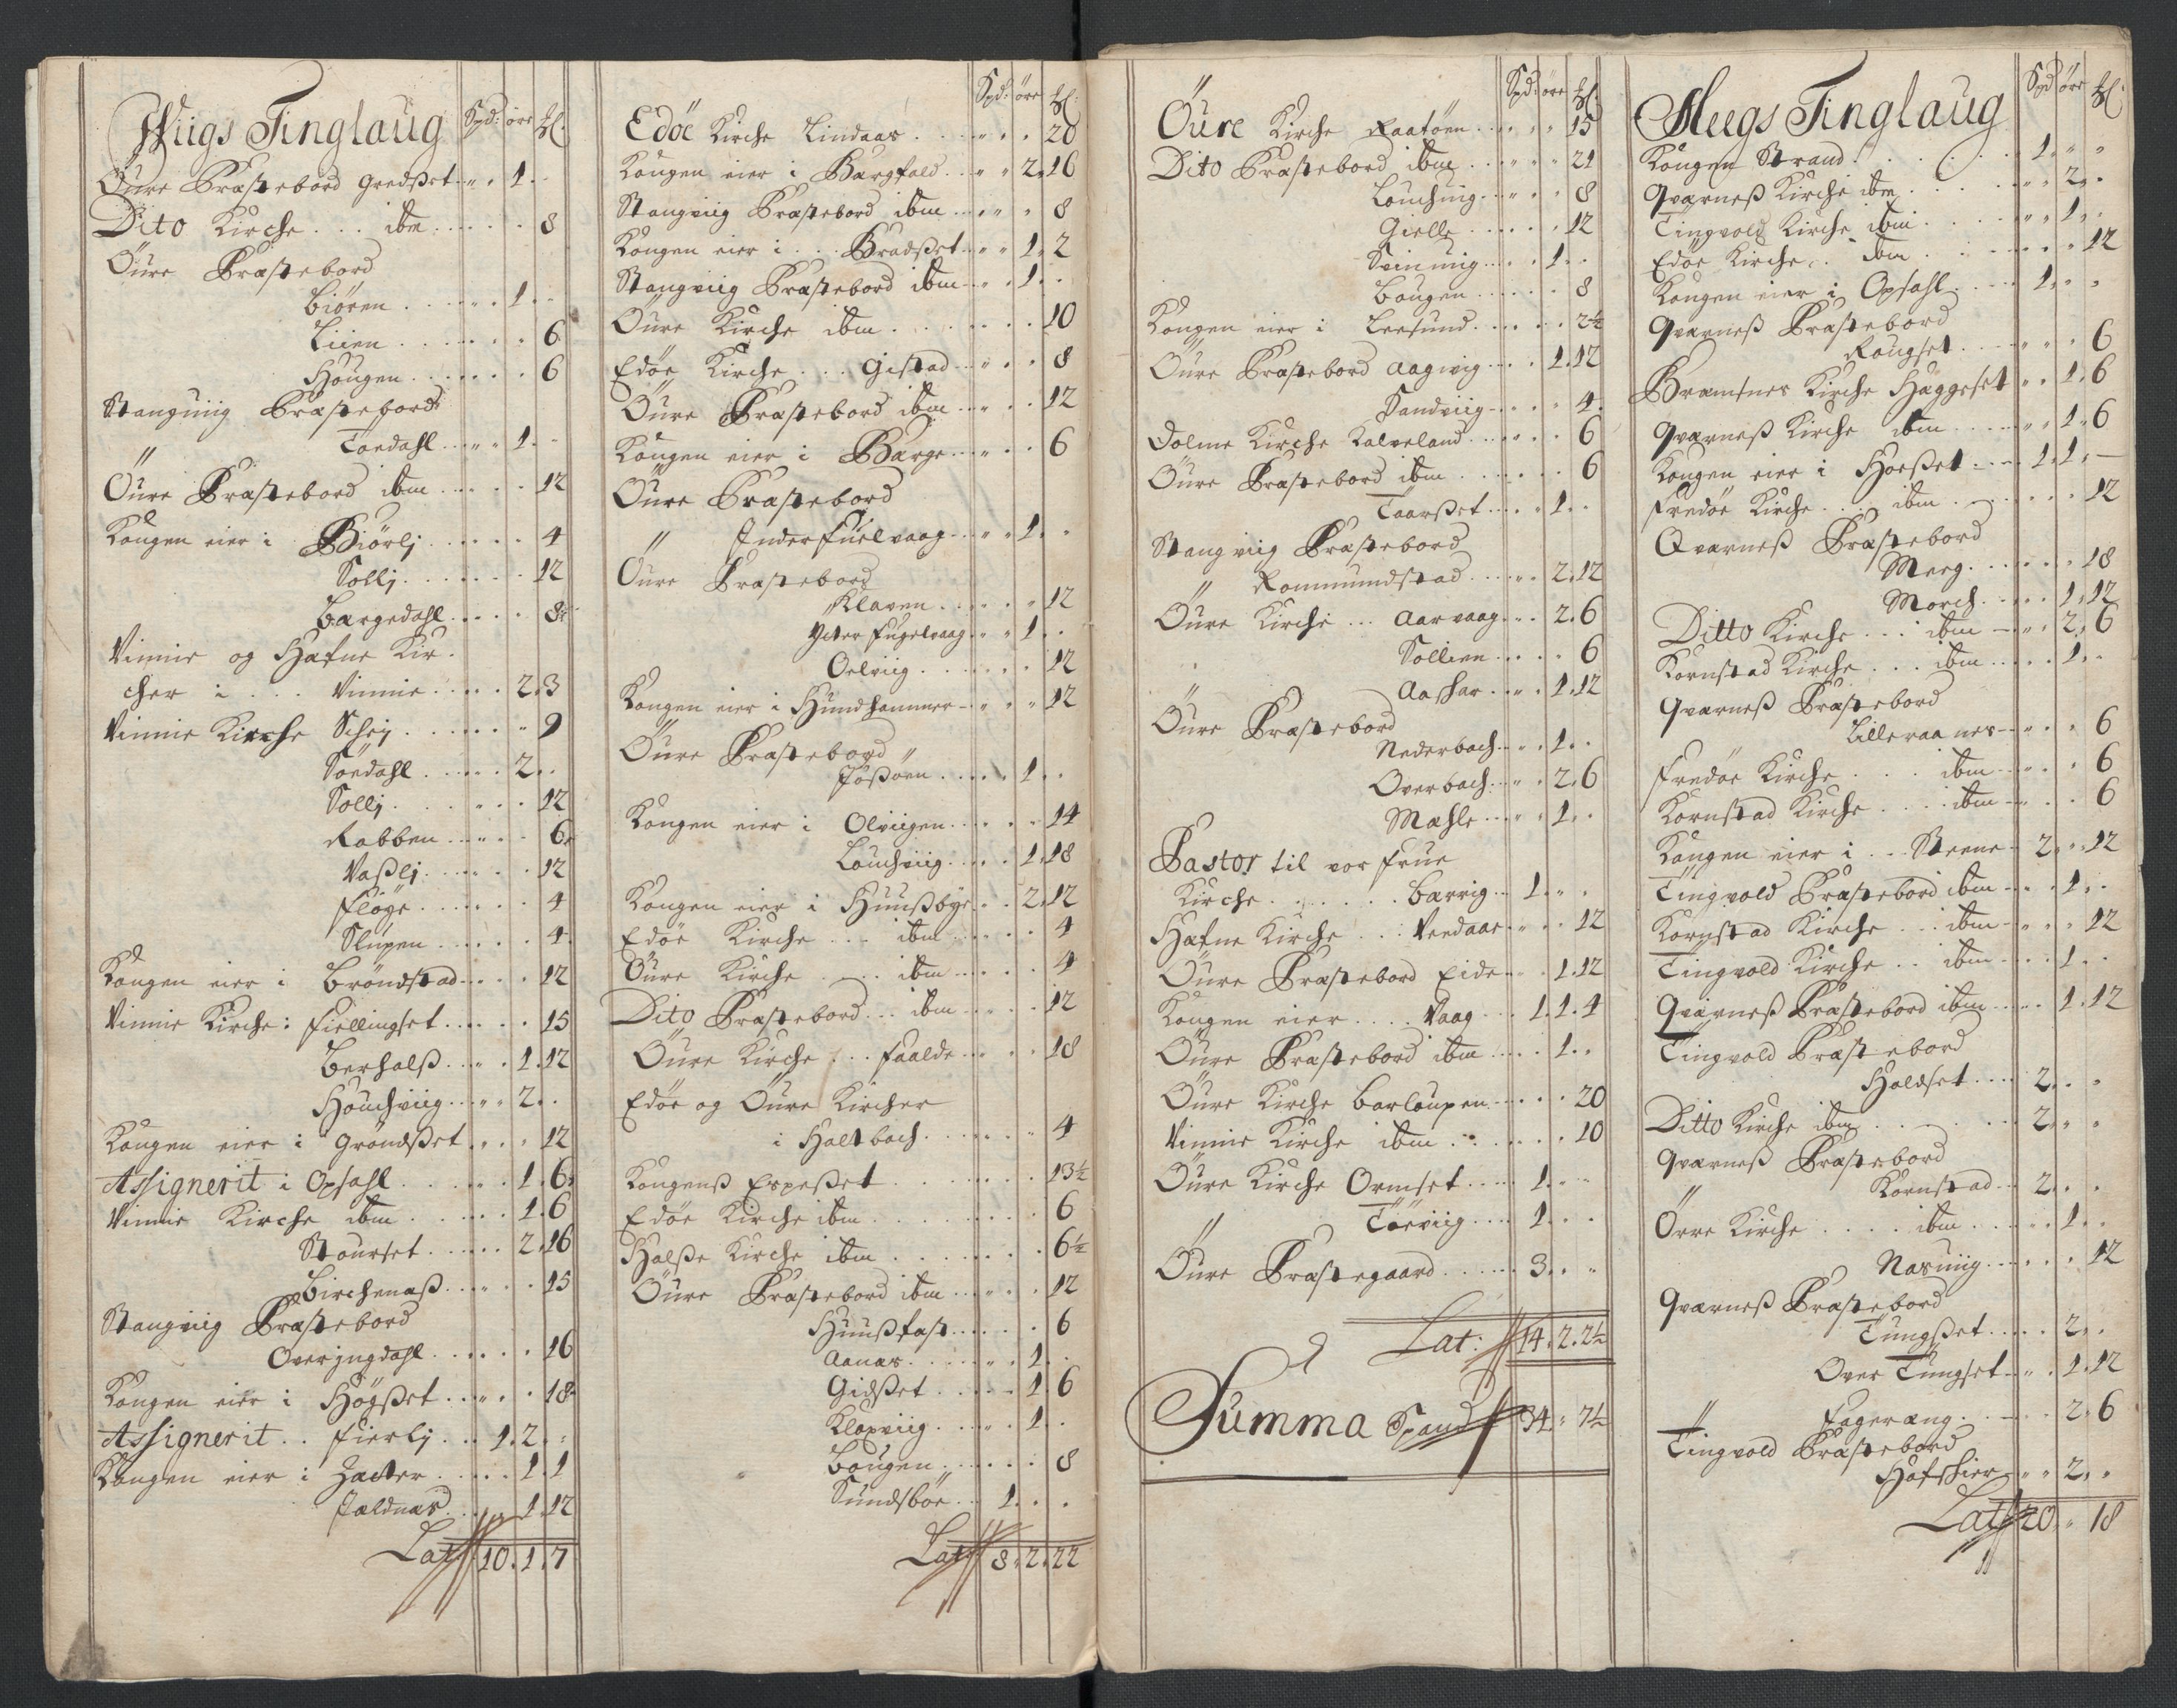 Wiigs Tinglaug Spd: öre ℔:
Öure Præstebord Gredsset 1
Dito Kirche ibm 8
Öure Præstebord
Biören 1
Liien 6
Hougen 6
Stangviig Præstebord
Tordahl 1
Öure Præstebord ibm 12
Kongen eier i Biörlj 4
Sollj 12
Bærgedahl 8
Vinnie og Hafne Kir-
cher i Vinnie 2. 3
Vinnie Kirche Schej 9
Sördahl 2
Sollj 12
Rabben 6
Vasslj 12
Flöye 4
Slupen 4
Kongen eier i Bröndstad 12
Vinnie Kirche: Fiellingset 15
Berhalss 1. 12
Houchviig 2
Kongen eier i Gröndsset 12
Assignerit i Opsahl 1. 6
Vinnie Kirche ibm 1. 6
Stourset 2. 16
Birchenæss 15
Stangviig Præstebord
Overjngdahl 16
Kongen eier i Högsset 18
Assignerit Fierlj 1. 2
Kongen eier i Zacter 1. 1
Jældnæs 1. 12
Lat 10. 1. 7
Spd: öre ℔:
Edöe Kirche Lindaas 20
Kongen eier i Bærgfald 2. 16
Stangviig Præstebord ibm 8
Kongen eier i Bradsset 1. 2
Stangviig Præstebord ibm 1
Öure Kirche ibm 10
Edöe Kirche Gistad 8
Öure Præstebord ibm 12
Kongen eier i Bærge 6
Öure Præstebord
Inderfuelvaag 1
Öure Præstebord
Klaven 12
Ytter Fugelvaag 1
Oelviig 12
Kongen eier i Hundhammer 12
Öure Præstebord
Jössöen 1
Kongen eier i Olviigen 14
Louchviig 1. 18
Kongen eier i Huussbye 2. 12
Edöe Kirche ibm 4
Öure Kirche ibm 4
Dito Præstebord ibm 12
Öure Kirche Faalde 18
Edöe og Öure Kircher
i Haltbach 4
Kongenss Erpesset 13½
Edöe Kirche ibm 6
Halsse Kirche ibm 6½
Öure Præstebord ibm 12
Huussfast 6
Aanæs 1
Gidsset 1. 6
Kloxviig 1
Bougen 8
Sundsböe 1
Lat 8. 2. 22
Spd: öre ℔:
Öure Kirche Raatöen 15
Dito Præstebord ibm 21
Louching 8
Gielle 12
Svinviig 1
Bougen 8
Kongen eier i Leesund 2½
Öure Præstebord Aagvig 1. 12
Sandviig 4
Dolme Kirche Kalveland 6
Öure Præstebord ibm 6
Taarsset 1
Stangviig Præstebord
Rommundstad 2. 12
Öure Kirche Aarvaag 2. 6
Sollien 6
Aashar 1. 12
Öure Præstebord
Nederbach 1
Overbach 2. 6
Mæhle 1
Pastor til vor Frue
Kirche Bærrig 1
Hafne Kirche Verdaas 12
Öure Præstebord Eide 1. 12
Kongen eier Vaag 1. 1. 4
Öure Præstebord ibm 1
Öure Kirche Barloupen 20
Vinnie Kirche ibm 10
Öure Kirche Ormset 1
Töeviig 1
Öure Præstegaard 3
Lat: 14. 2. 2½
Summa Spand 34. 7½
Meegs Tinglaug Spd öre ℔:
Kongen Strand 1
Qværness Kirche ibm 2
Tingvold Kirche ibm 1
Edöe Kirche ibm 12
Kongen eier i Opsahl 1
Qværness Præstebord
Rougset 6
Bremsnes Kirche Häggeset 1. 6
Qværness Kirche ibm 1. 6
Kongen eier i Hoesset 1. 1
Fredöe Kirche ibm 12
Qværness Præstebord
Meeg 18
Morch 1. 12
Ditto Kirche ibm 2. 6
Kornstad Kirche ibm 1
Qværness Præstebord
Lilleraanes 6
Fredöe Kirche ibm 6
Kornstad Kirche ibm 6
Kongen eier i Steene 2. 12
Tingvold Præstebord ibm 1
Kornstad Kirche ibm 12
Tingvold Kirche ibm 1
Qværness Præstebord ibm 1. 12
Tingvold Præstebord
Holdset 2
Ditto Kirche ibm 2
Qværness Præstebord
Kornstad 2
Örre Kirche ibm 1
Nasviig 12
Qværness Præstebord
Tungsset 2
Over Tungset 1. 12
Fageræng 2. 6
Tingvold Præstebord
Hafskier 2
Lat 20. 18